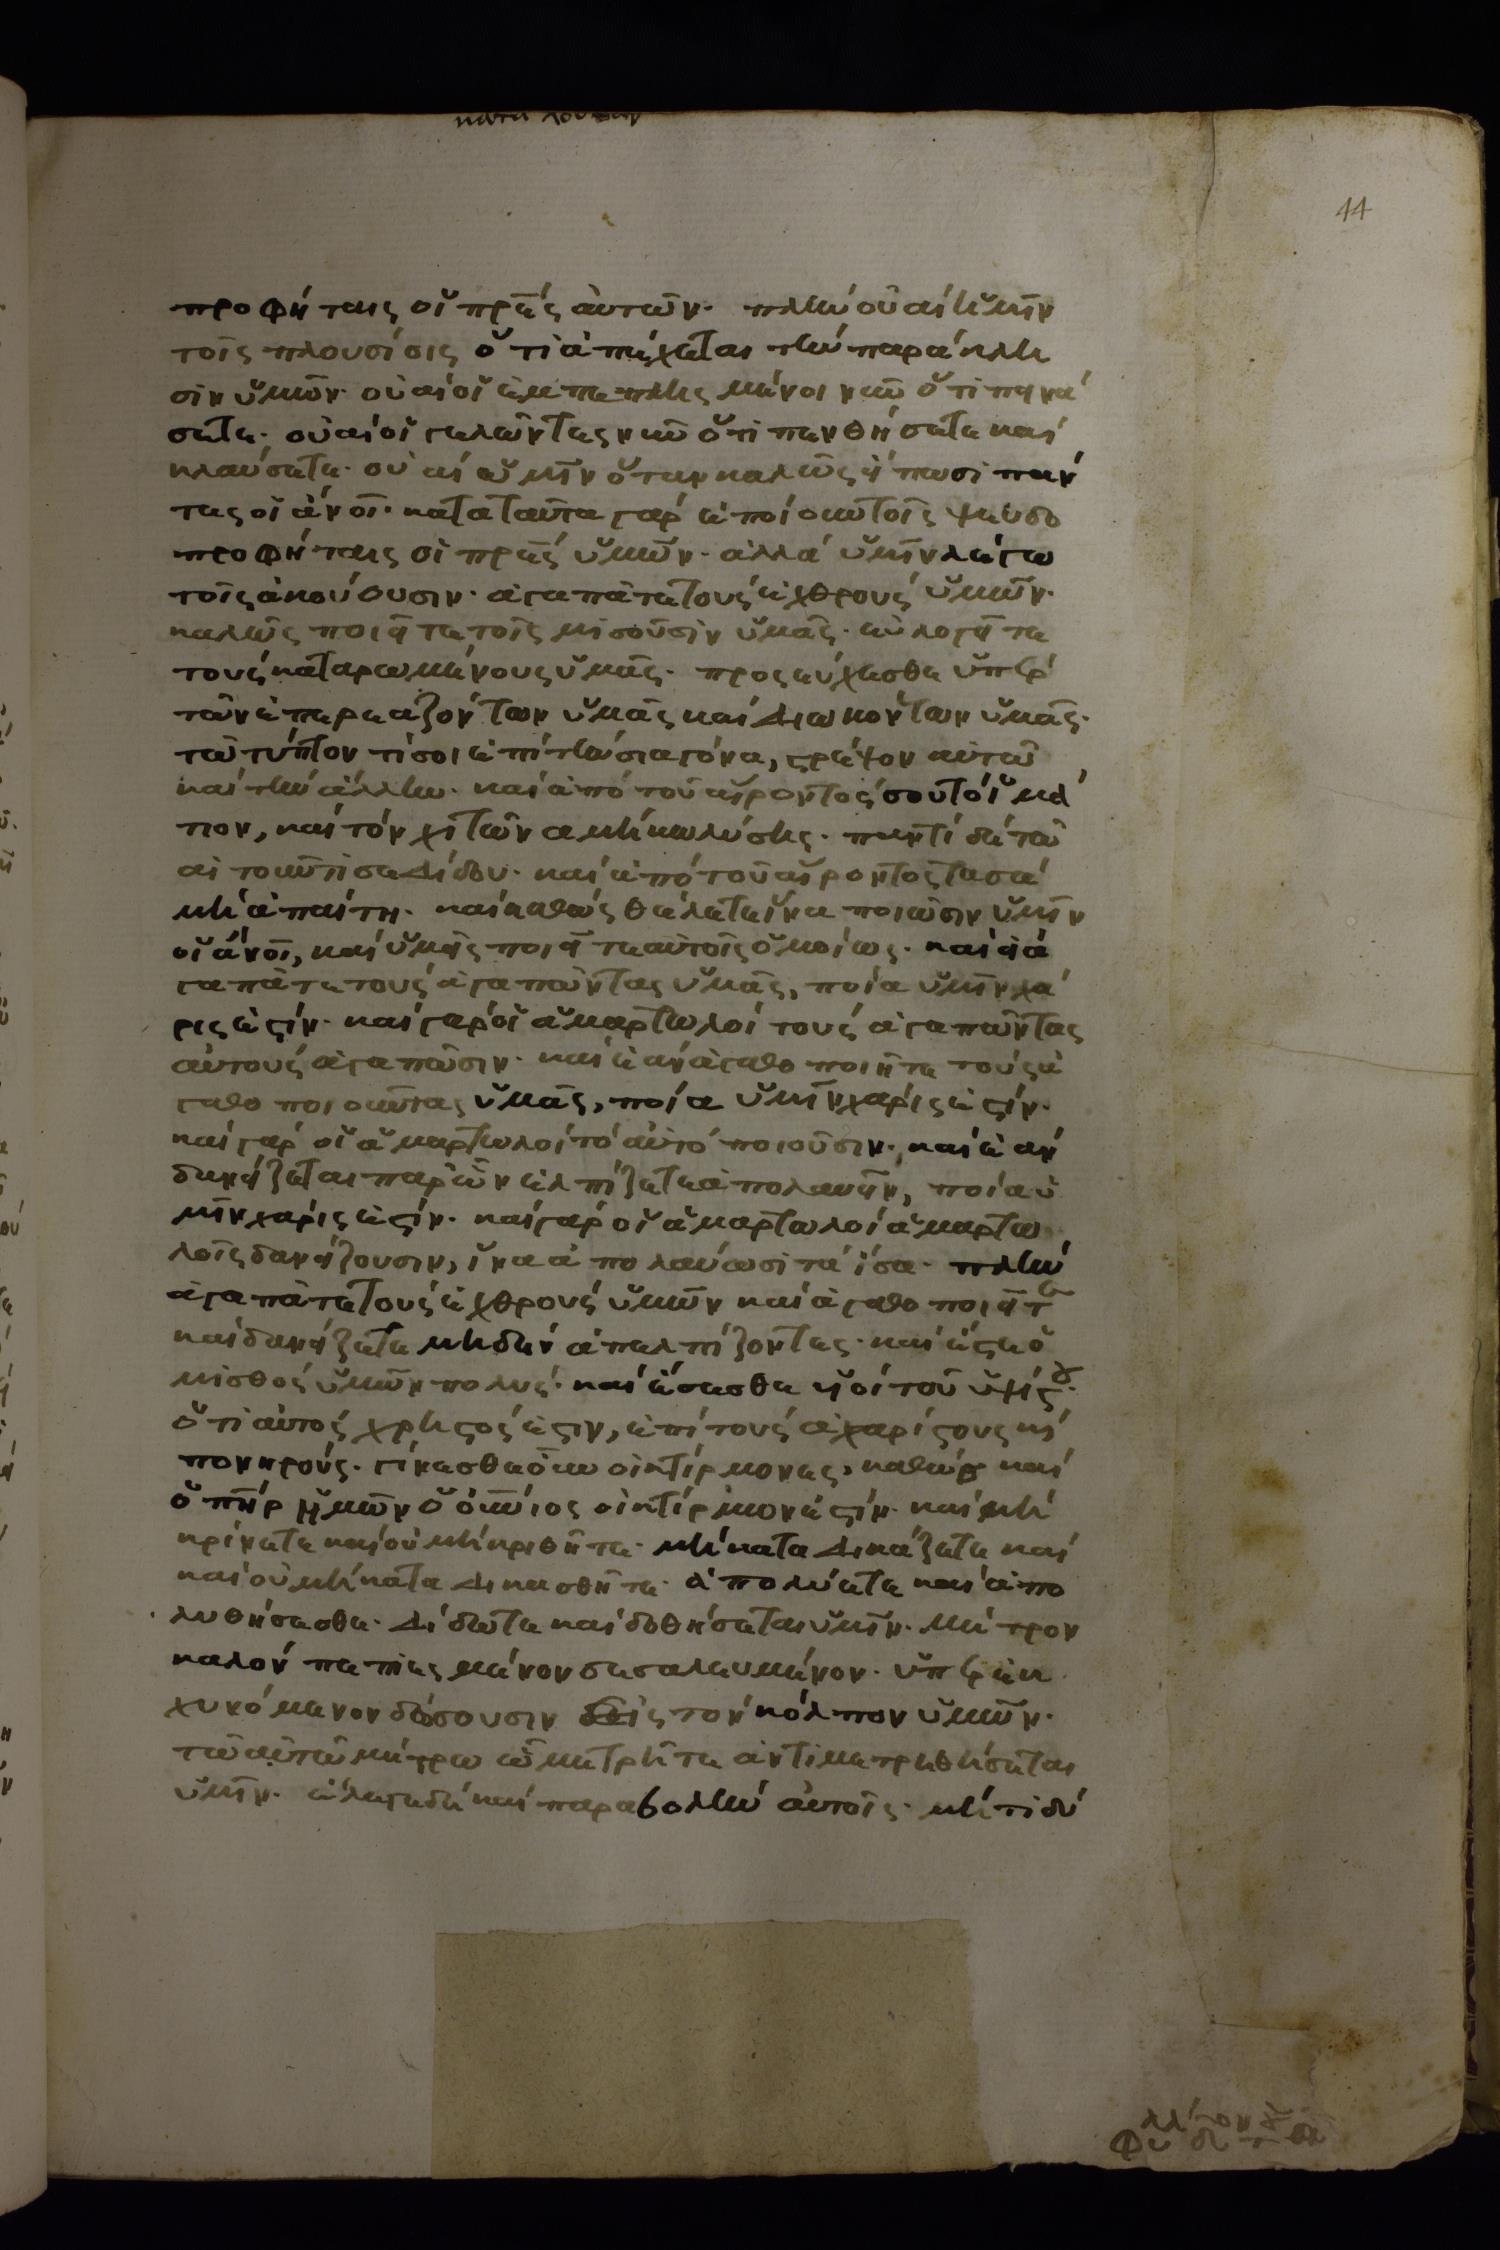 κατα λουκαν
44
προφήταις οἱ πρ̅ε̅ς αὐτῶν· πλὴν οὐαὶ ὑμῖν
τοῖς πλουσίοις ὅτι ἀπέχεται τὴν παράκλη
σιν ὑμῶν· οὐαὶ οἱ ἐμπεπλησμένοι νῦν ὅτι πεινά
σετε· οὐαὶ οἱ γελῶντες νῦν ὅτι πενθήσετε καὶ
κλαύσετε· οὐαὶ ὑμῖν ὅταν καλῶς εἴπωσι πάν
τες οἱ ἀ̅ν̅ο̅ι· κατα ταῦτα γὰρ ἐποίουν τοῖς ψευδο
προφήταις οἱ πρ̅ε̅ς ὑμῶν· ἀλλὰ ὑμῖν λέγω
τοῖς ἀκούουσιν· ἀγαπᾶτε τοὺς ἐχθροὺς ὑμῶν·
καλῶς ποιεῖτε τοῖς μισοῦσιν ὑμᾶς· εὐλογεῖτε
τοὺς καταρωμένους ὑμᾶς· προσεύχεσθε ὑπὲρ
τῶν ἐπηρεαζόντων ὑμᾶς καὶ διωκόντων ὑμᾶς·
τῶ τύπτοντί σοι ἐπὶ τὴν σιαγόνα, στρέψον αὐτῶ
καὶ τὴν ἄλλην· καὶ ἀπὸ τοῦ αἴροντός σου τὸ ἱμά
τιον, καὶ τὸν χιτῶνα μὴ κωλύσης· παντὶ δὲ τῶ
αἰτοῦντί σε δίδου· καὶ ἀπὸ τοῦ αἴροντος τα σὰ
μὴ ἀπαίτει· καὶ καθὼς θέλετε ἵνα ποιῶσιν ὑμῖν
οἱ ἀ̅ν̅ο̅ι, καὶ ὑμεῖς ποιεῖτε αὐτοῖς ὁμοίως· καὶ εἰ ἀ
γαπᾶτε τοὺς ἀγαπῶντας ὑμᾶς, ποία ὑμῖν χά
ρις ἐστίν· καὶ γὰρ οἱ ἁμαρτωλοὶ τοὺς ἀγαπῶντας
αὐτοὺς ἀγαπῶσιν· καὶ ἐὰν ἀγαθοποιῆτε τοὺς ἀ
γαθοποιοῦντας ὑμᾶς, ποία ὑμῖν χάρις ἐστίν·
καὶ γὰρ οἱ ἁμαρτωλοὶ τὸ αὐτὸ ποιοῦσιν· καὶ ἐὰν
δανείζεται παρ' ὧν ἐλπίζετε ἀπολαυεῖν, ποία ὑ
μῖν χάρις ἐστίν· καὶ γὰρ οἱ ἁμαρτωλοὶ ἁμαρτω
λοῖς δανείζουσιν, ἵνα ἀπολαύωσι τὰ ἴσα· πλὴν
ἀγαπᾶτε τοὺς ἐχθροὺς ὑμῶν καὶ ἀγαθοποιεῖτε
καὶ δανείζετε μηδὲν ἀπελπίζοντες· καὶ ἔσται ὁ
μισθὸς ὑμῶν πολύς· καὶ ἔσεσθε υἱοὶ τοῦ ὑψίστου·
ὅτι αὐτὸς χρηστός ἐστιν, ἐπὶ τοὺς ἀχαρίστους καὶ
πονηρούς· γίνεσθε οὖν οἰκτίρμονες, καθὼς καὶ
ὁ π̅η̅ρ ὑμῶν ὁ οὐ̅ν̅ιος οἰκτίρμον ἐστίν· καὶ μὴ
κρίνετε καὶ οὐ μὴ κριθῆτε· μὴ καταδικάζετε καὶ
καὶ οὐ μὴ καταδικασθῆτε· ἀπολύετε καὶ ἀπο
λυθήσεσθε· δίδοτε καὶ δοθήσεται ὑμῖν· μέτρον
καλὸν πεπιεσμένον σεσαλευμένον· ὑπερεκ
χυνόμενον δώσουσιν εἰς τὸν κόλπον ὑμῶν·
τῶ αὐτῶ μέτρω ὧ μετρῆτε ἀντιμετρηθήσεται
ὑμῖν· ἔλεγε δὲ καὶ παραβολὴν αὐτοῖς· μήτι δύ